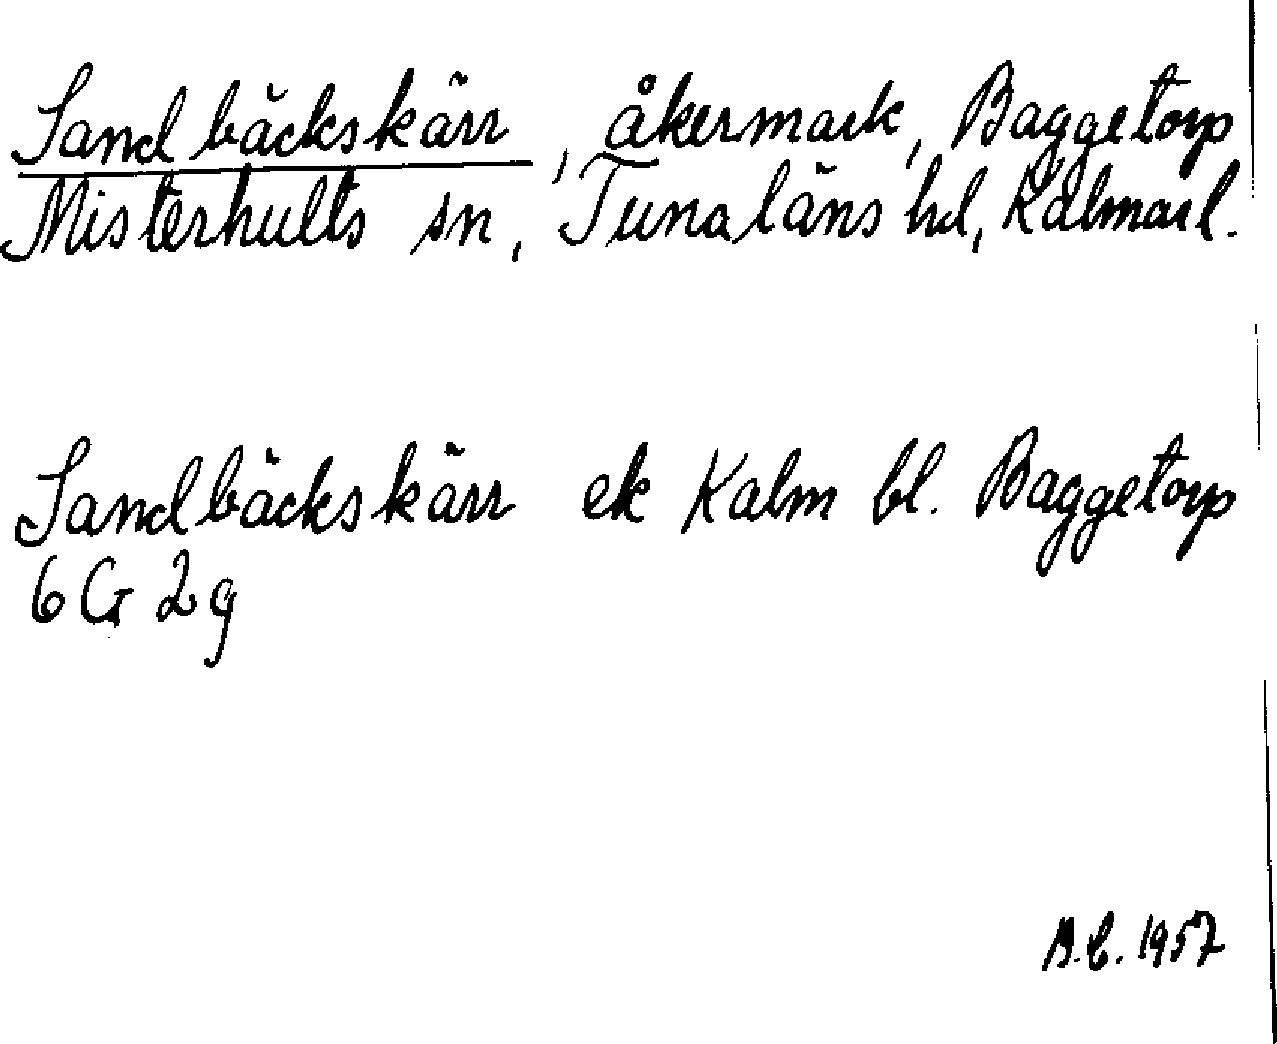 Sandbäckskärr, åkermark, Baggetorp
Misterhults sn, Tunaläns hd, Kalmar l.
Sandbäckskärr ek Kalm bl. Baggetorp
6 G 2 g
B.C. 1957